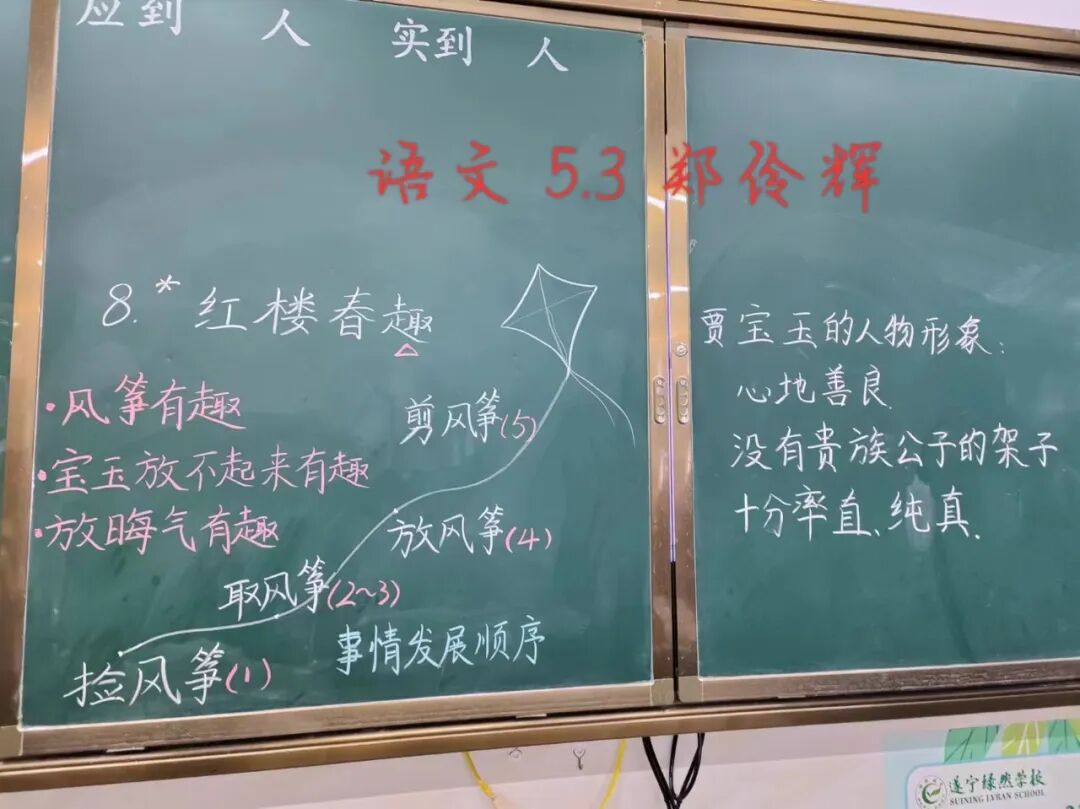 应到 人 实到 人
语文 5.3 郑伶辉
8.* 红楼春趣
·风筝有趣
·宝玉放不起来有趣
·放晦气有趣
剪风筝(5)
放风筝(4)
取风筝(2~3)
捡风筝(1)
事情发展顺序
贾宝玉的人物形象:
心地善良
没有贵族公子的架子
十分率直、纯真.
遂宁绿然学校
SUINING LVRAN SCHOOL